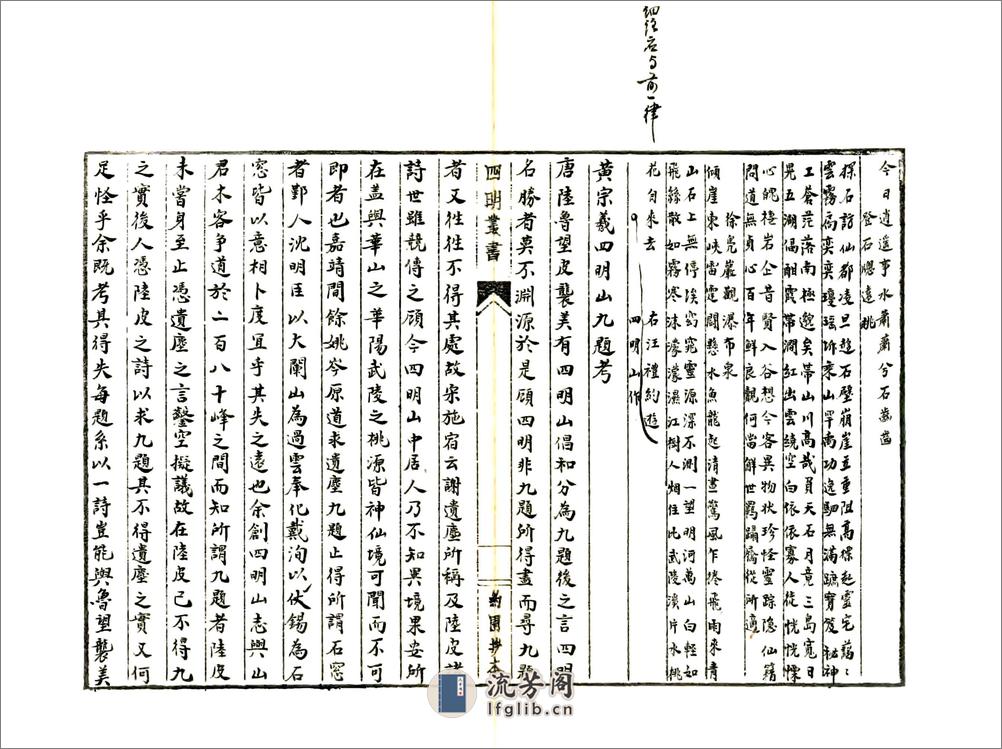 細注底与前一律
今日逍遙亭水蕭蕭兮石齒齒
登石牕遠眺
探石訪仙都凌旦趂石壁崩崖豆重阻高標起靈宅藹〻
雲霧扃奕奕瓊瑤坼乘山罕南功逸駟無滿蹠寶笈秘神
工蒼茫落南極邈矣帶山川高哉員天石月竟三島寬日
晃五湖偪嵓霞帶澗紅出雲繞空白依依寡人從恍恍慄
心魄捿岩企昔賢入谷想今客異物狀珍怪靈踪隱仙籍
問道無貞心百年鮮良覿何當解世羈躡屩從所適
徐鳧巖觀瀑布泉
傾崖東峽雷霆鬭懸水魚龍起清晝驚風乍捲飛雨來青
山石上無停溪窈窕靈源深不測一望明河萬山白輕如
飛絲散如霧寒沫濛濛濕江樹人烟住比武陵溪片水桃
花自來去
右汪禮約遊
四明山作
黃宗羲四明山九題考
唐陸魯望皮襲美有四明山倡和分為九題後之言四明
名勝者莫不淵源於是顧四明非九題所得盡而尋九題
四明叢書
約園抄本
者又徃徃不得其處故宋施宿云謝遺塵所稱及陸皮諸
詩世雖競傳之顧今四明山中居人乃不知異境果安所
在蓋與華山之華陽武陵之桃源皆神仙境可聞而不可
即者也嘉靖間餘姚岑原道求遺塵九題止得所謂石窓
者鄞人沈明臣以大闌山為過雲奉化戴洵以伏錫為石
窓皆以意相卜度宜乎其失之遠也余創四明山志與山
君木客爭道於二百八十峰之間而知所謂九題者陸皮
未嘗身至止憑遺塵之言鑿空擬議故在陸皮已不得九
之實後人憑陸皮之詩以求九題其不得遺塵之實又何
足怪乎余既考其得失每題系以一詩豈能與魯望襲美
流芳閣
lfglib.cn